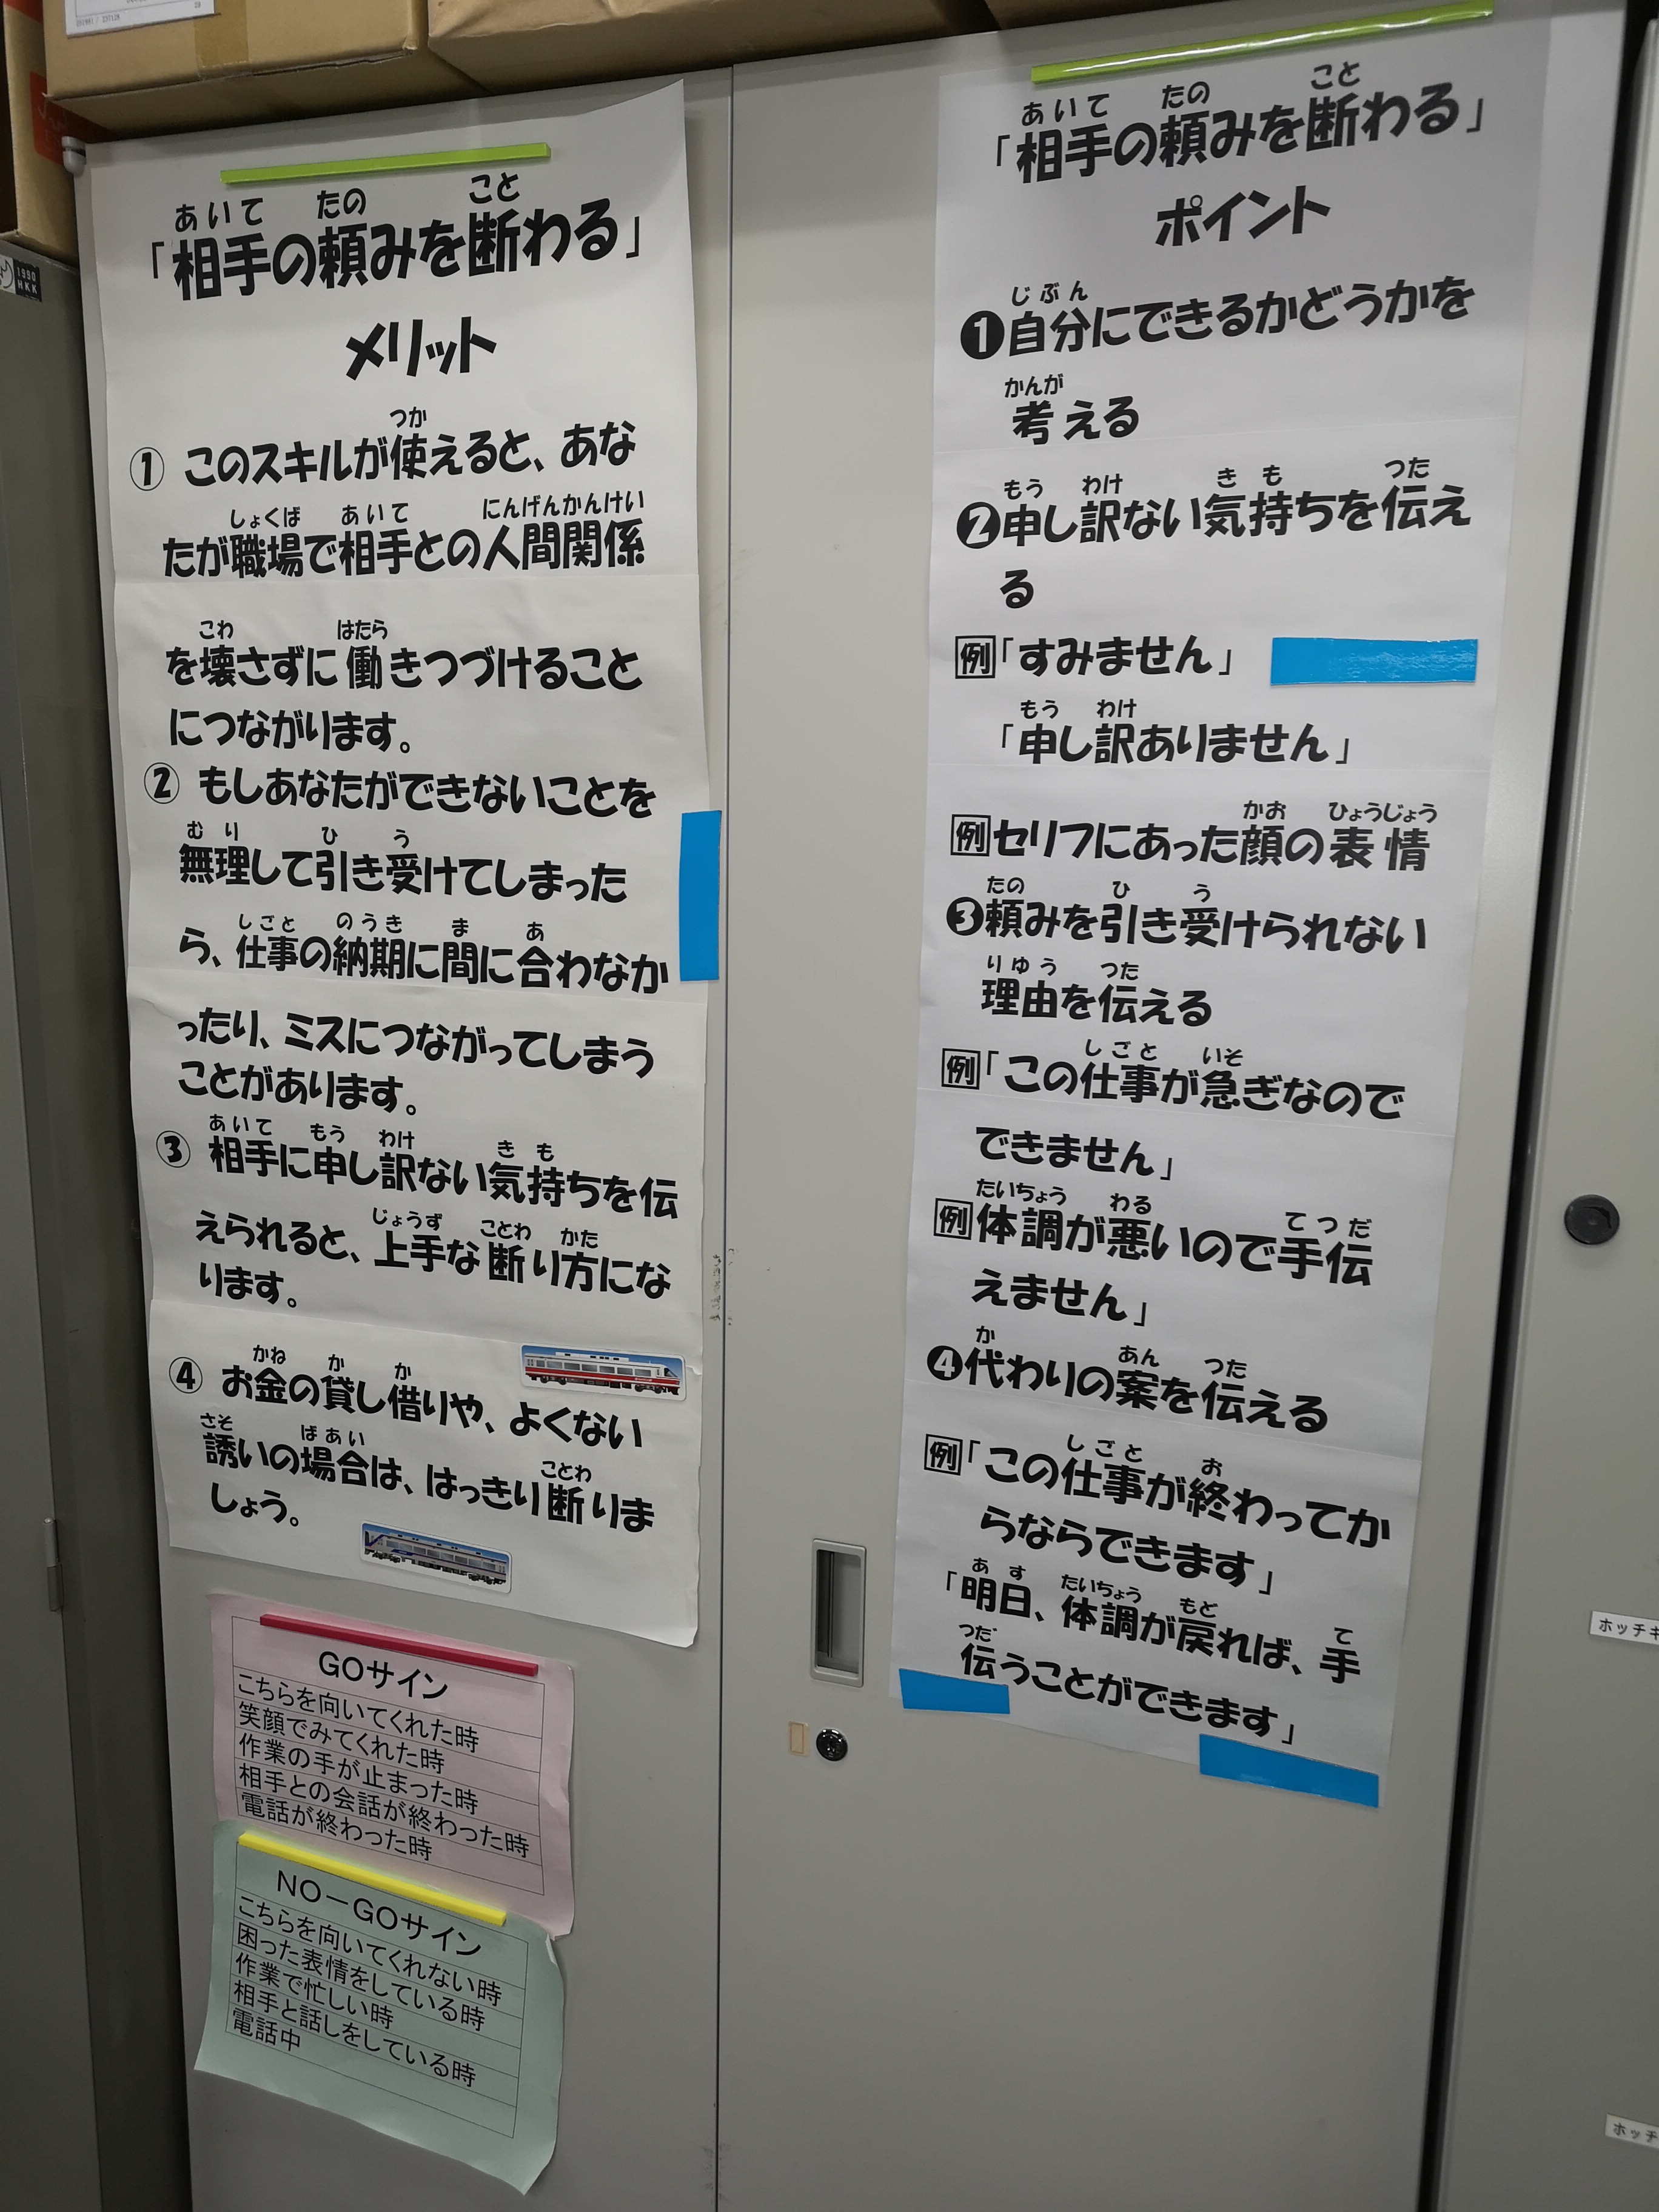 「相手の頼みを断わる」
メリット
① このスキルが使えると、あな
たが職場で相手との人間関係
を壊さずに働きつづけること
につながります。
② もしあなたができないことを
無理して引き受けてしまった
ら、仕事の納期に間に合わなか
ったり、ミスにつながってしまう
ことがあります。
③ 相手に申し訳ない気持ちを伝
えられると、上手な断り方にな
ります。
④ お金の貸し借りや、よくない
誘いの場合は、はっきり断りま
しょう。
GOサイン
こちらを向いてくれた時
笑顔でみてくれた時
作業の手が止まった時
相手との会話が終わった時
電話が終わった時
NO－GOサイン
こちらを向いてくれない時
困った表情をしている時
作業で忙しい時
相手と話しをしている時
電話中
「相手の頼みを断わる」
ポイント
❶自分にできるかどうかを
考える
❷申し訳ない気持ちを伝え
る
例「すみません」
「申し訳ありません」
例セリフにあった顔の表情
❸頼みを引き受けられない
理由を伝える
例「この仕事が急ぎなので
できません」
例体調が悪いので手伝
えません」
❹代わりの案を伝える
例「この仕事が終わってか
らならできます」
「明日、体調が戻れば、手
伝うことができます」
1990
HKK
ホッチキ
ホッチ